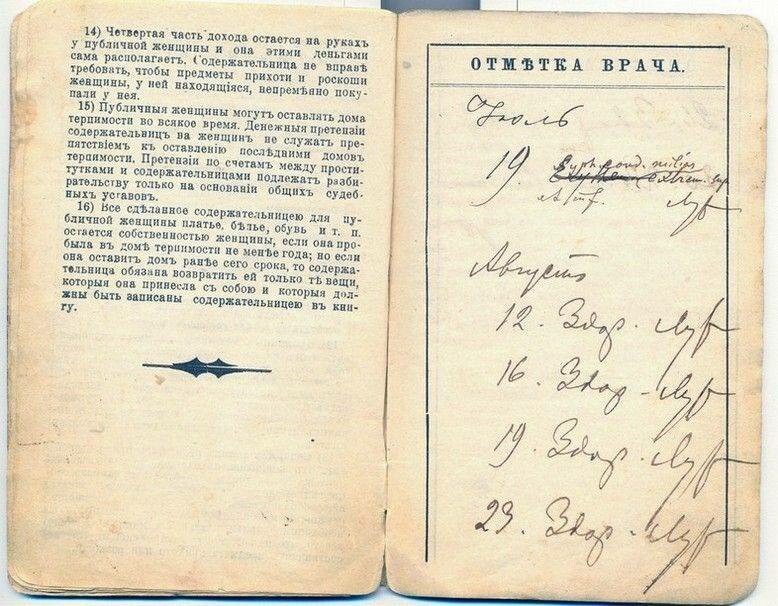 14) Четвертая часть дохода остается на рукахъ
у публичной женщины и она этими деньгами
сама располагаетъ. Содержательница не вправѣ
требовать, чтобы предметы прихоти и роскоши
женщины, у ней находящіяся, непремѣнно поку-
пали у нея.
15) Публичныя женщины могутъ оставлять дома
терпимости во всякое время. Денежныя претензіи
содержательницъ на женщинъ не служатъ пре-
пятствіемъ къ оставленію послѣдними домовъ
терпимости. Претензіи по счетамъ между прости-
тутками и содержательницами подлежатъ разби-
рательству только на основаніи общихъ судеб-
ныхъ уставовъ.
16) Все сдѣланное содержательницею для пу-
бличной женщины платье, бѣлье, обувь и т. п.
остается собственностью женщины, если она про-
была въ домѣ терпимости не менѣе года; но если
она оставитъ домъ ранѣе сего срока, то содержа-
тельница обязана возвратить ей только тѣ вещи,
которыя она принесла съ собою и которыя дол-
жны быть записаны содержательницею въ кни-
гу.
ОТМѢТКА ВРАЧА.
Іюль
19
Августъ
12. Здор.
16. Здор.
19. Здор.
23. Здор.